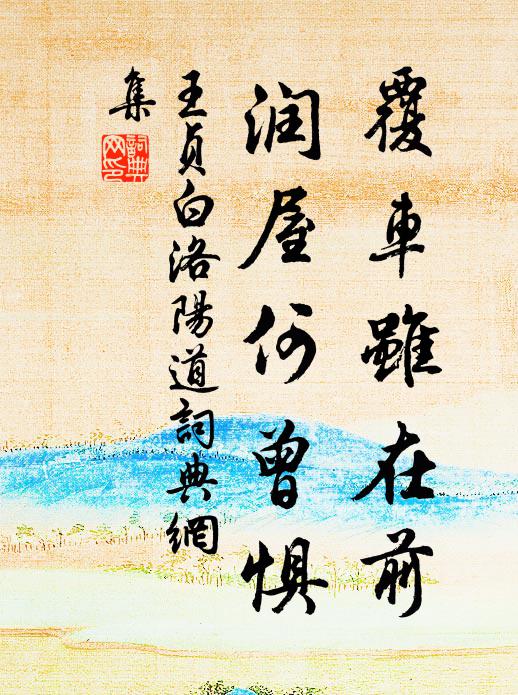 覆車雖在前
润屋何曾惧
王貞白洛陽道詞典網
集
詞典
网印